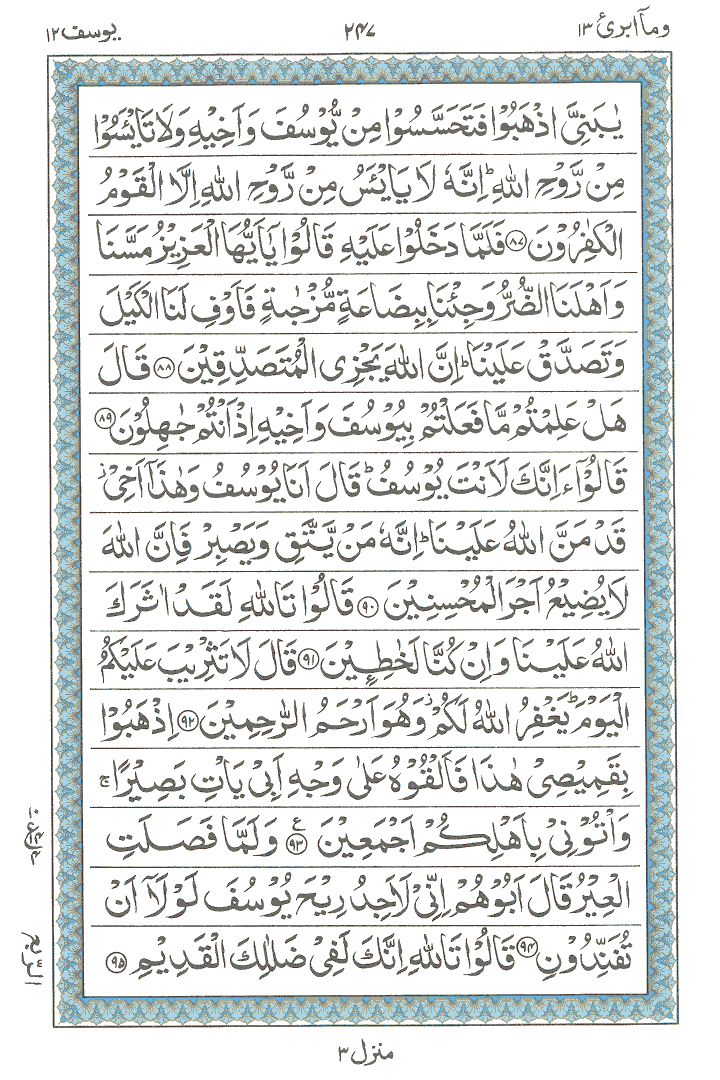 وما ابرئ ۱۳
۲۴۷
يوسف ۱۲
يٰبَنِىَّ اذْهَبُوْا فَتَحَسَّسُوْا مِنْ يُّوْسُفَ وَاَخِيْهِ وَلَا تَايْـَٔسُوْا
مِنْ رَّوْحِ اللّٰهِ ؕ اِنَّهٗ لَا يَايْـَٔسُ مِنْ رَّوْحِ اللّٰهِ اِلَّا الْقَوْمُ
الْكٰفِرُوْنَ ﴿۸۷﴾ فَلَمَّا دَخَلُوْا عَلَيْهِ قَالُوْا يٰۤاَيُّهَا الْعَزِيْزُ مَسَّنَا
وَاَهْلَنَا الضُّرُّ وَجِئْنَا بِبِضَاعَةٍ مُّزْجٰىةٍ فَاَوْفِ لَنَا الْكَيْلَ
وَتَصَدَّقْ عَلَيْنَا ؕ اِنَّ اللّٰهَ يَجْزِى الْمُتَصَدِّقِيْنَ ﴿۸۸﴾ قَالَ
هَلْ عَلِمْتُمْ مَّا فَعَلْتُمْ بِيُوْسُفَ وَاَخِيْهِ اِذْ اَنْتُمْ جٰهِلُوْنَ ﴿۸۹﴾
قَالُوْٓا ءَاِنَّكَ لَاَنْتَ يُوْسُفُ ؕ قَالَ اَنَا يُوْسُفُ وَهٰذَاۤ اَخِىْ ؗ
قَدْ مَنَّ اللّٰهُ عَلَيْنَا ؕ اِنَّهٗ مَنْ يَّتَّقِ وَيَصْبِرْ فَاِنَّ اللّٰهَ
لَا يُضِيْعُ اَجْرَ الْمُحْسِنِيْنَ ﴿۹۰﴾ قَالُوْا تَاللّٰهِ لَقَدْ اٰثَرَكَ
اللّٰهُ عَلَيْنَا وَاِنْ كُنَّا لَخٰطِـِٕيْنَ ﴿۹۱﴾ قَالَ لَا تَثْرِيْبَ عَلَيْكُمُ
الْيَوْمَ ؕ يَغْفِرُ اللّٰهُ لَكُمْ ؗ وَهُوَ اَرْحَمُ الرّٰحِمِيْنَ ﴿۹۲﴾ اِذْهَبُوْا
بِقَمِيْصِىْ هٰذَا فَاَلْقُوْهُ عَلٰى وَجْهِ اَبِىْ يَاْتِ بَصِيْرًا ۚ
وَاْتُوْنِىْ بِاَهْلِكُمْ اَجْمَعِيْنَ ﴿۹۳﴾ ع وَلَمَّا فَصَلَتِ
الْعِيْرُ قَالَ اَبُوْهُمْ اِنِّىْ لَاَجِدُ رِيْحَ يُوْسُفَ لَوْلَاۤ اَنْ
تُفَنِّدُوْنِ ﴿۹۴﴾ قَالُوْا تَاللّٰهِ اِنَّكَ لَفِىْ ضَلٰلِكَ الْقَدِيْمِ ﴿۹۵﴾
الربع
منزل ۳